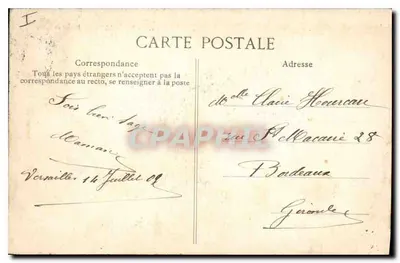 I
CARTE POSTALE
Correspondance
Tous les pays étrangers n'acceptent pas la
correspondance au recto, se renseigner à la poste
Sois bien sage
Maman
Versailles 14 Juillet 02
Adresse
Melle Claire Hourcau
rue St Macaire 28
Bordeaux
Gironde
CPARAMA